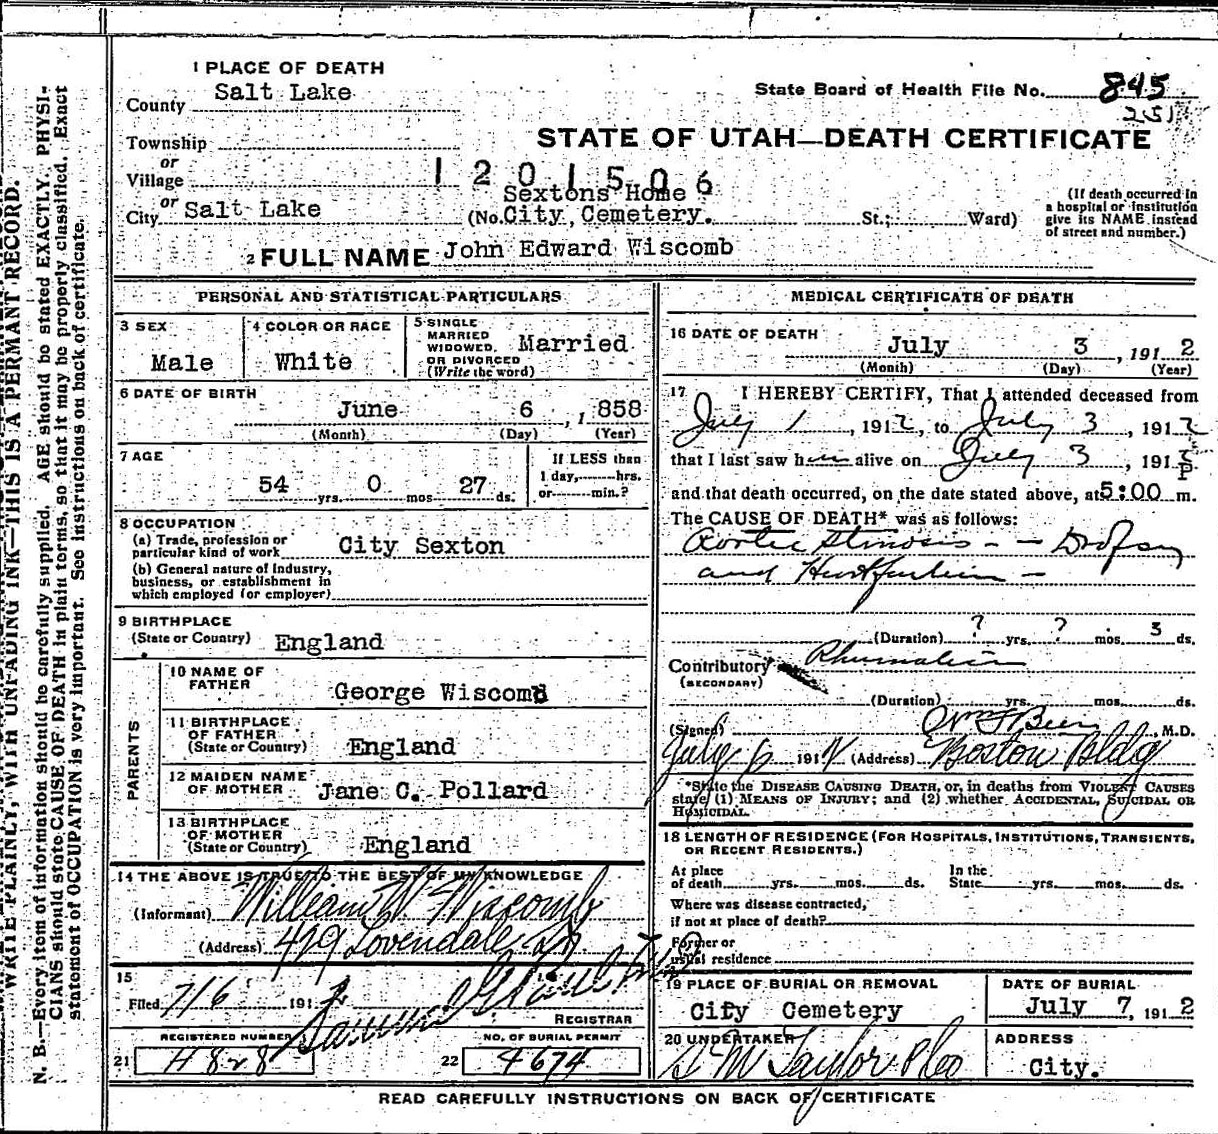 1 PLACE OF DEATH
County Salt Lake
State Board of Health File No. 845
251
Township
or
Village
STATE OF UTAH—DEATH CERTIFICATE
1201506
City or Salt Lake
(No. Sextons Home
City, Cemetery. St.; Ward)
(If death occurred in
a hospital or institution
give its NAME instead
of street and number.)
2 FULL NAME John Edward Wiscomb
PERSONAL AND STATISTICAL PARTICULARS
3 SEX
Male
4 COLOR OR RACE
White
5 SINGLE
MARRIED
WIDOWED
OR DIVORCED
(Write the word)
Married
6 DATE OF BIRTH
June 6, 1858
(Month) (Day) (Year)
7 AGE
54 yrs. 0 mos 27 ds.
If LESS than
1 day, hrs.
or min.?
8 OCCUPATION
(a) Trade, profession or
particular kind of work City Sexton
(b) General nature of Industry,
business, or establishment in
which employed (or employer)
9 BIRTHPLACE
(State or Country) England
PARENTS
10 NAME OF
FATHER George Wiscomb
11 BIRTHPLACE
OF FATHER
(State or Country) England
12 MAIDEN NAME
OF MOTHER Jane C. Pollard
13 BIRTHPLACE
OF MOTHER
(State or Country) England
14 THE ABOVE IS TRUE TO THE BEST OF MY KNOWLEDGE
(Informant) William W Wiscomb
(Address) 419 Lovendale
15
Filed 7/6 191 2 Samuel G
REGISTRAR
REGISTERED NUMBER
21 H828
NO. OF BURIAL PERMIT
22 4674
MEDICAL CERTIFICATE OF DEATH
16 DATE OF DEATH
July 3, 191 2
(Month) (Day) (Year)
17 I HEREBY CERTIFY, That I attended deceased from
July 1, 1912, to July 3, 1912
that I last saw him alive on July 3, 191
and that death occurred, on the date stated above, at 5:00 P m.
The CAUSE OF DEATH* was as follows:
Aortic Stinosis - - Dropsy
and
(Duration) ? yrs. ? mos. 3 ds.
Contributory Rhumatism
(SECONDARY)
(Duration) yrs. mos. ds.
(Signed) Wm F Beer, M.D.
July 6 191 (Address) Boston Bldg
*State the DISEASE CAUSING DEATH, or, in deaths from VIOLENT CAUSES
state (1) MEANS OF INJURY; and (2) whether ACCIDENTAL, SUICIDAL OR
HOMICIDAL.
18 LENGTH OF RESIDENCE (FOR HOSPITALS, INSTITUTIONS, TRANSIENTS,
OR RECENT RESIDENTS.)
At place
of death yrs. mos. ds.
In the
State yrs. mos. ds.
Where was disease contracted,
if not at place of death?
Former or
usual residence
19 PLACE OF BURIAL OR REMOVAL
City Cemetery
DATE OF BURIAL
July 7, 191 2
20 UNDERTAKER
S M Taylor & Co
ADDRESS
City.
READ CAREFULLY INSTRUCTIONS ON BACK OF CERTIFICATE
WRITE PLAINLY, WITH UNFADING INK—THIS IS A PERMANT RECORD.
N. B.—Every item of information should be carefully supplied. AGE should be stated EXACTLY. PHYSI-
CIANS should state CAUSE OF DEATH in plain terms, so that it may be properly classified. Exact
statement of OCCUPATION is very important. See instructions on back of certificate.